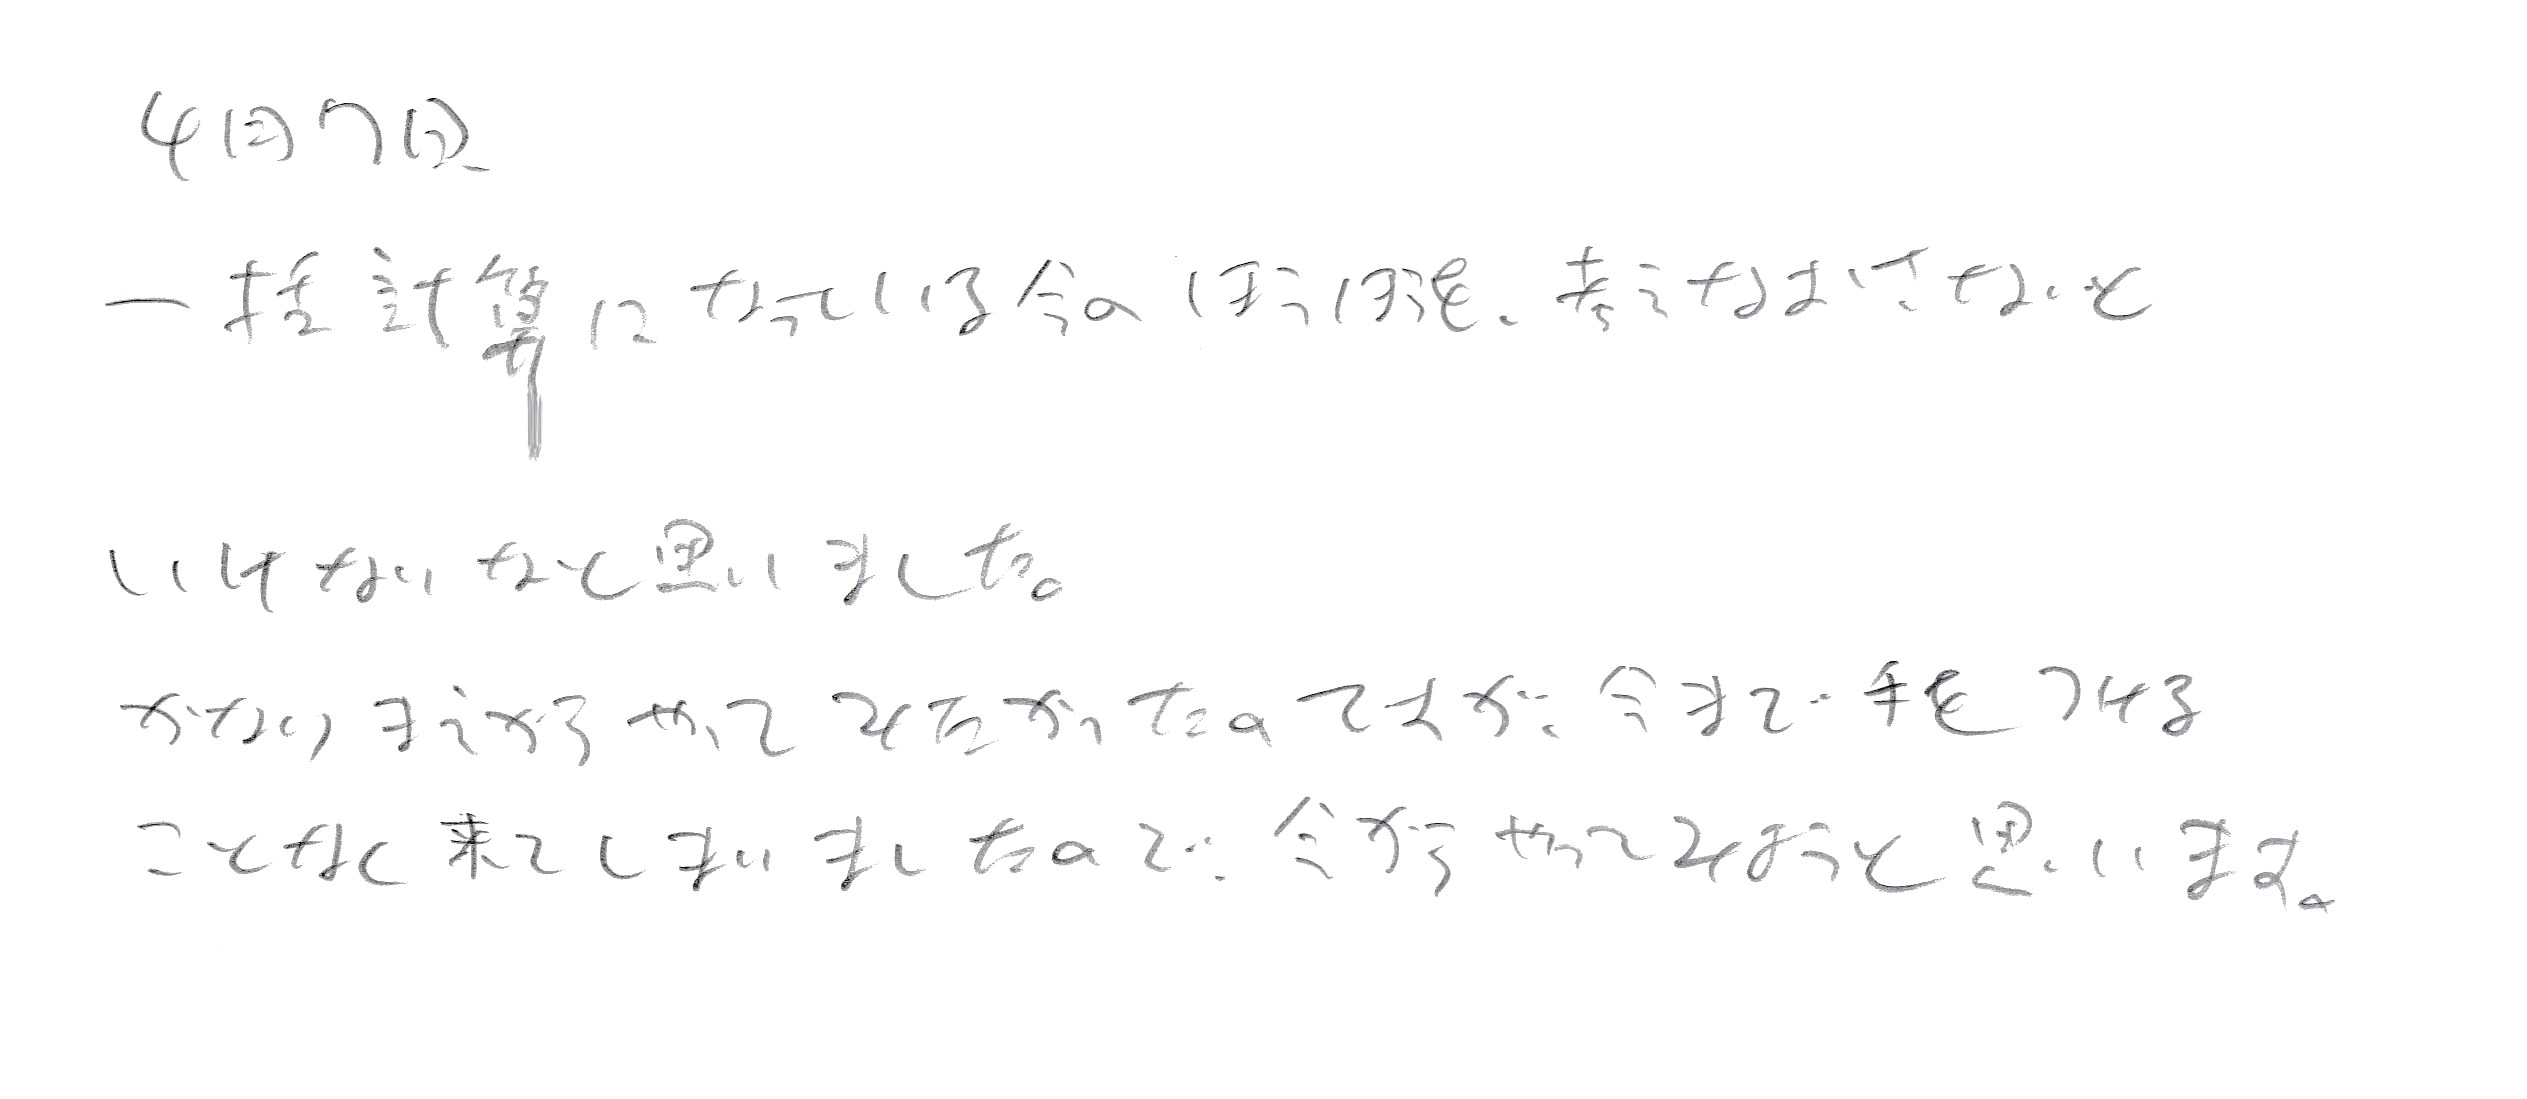 4月7日
一括計算になっている今のほうほうを、考えなおさないと
いけないなと思いました。
かなりまえからやってみたかったのですが、今まで手をつける
ことなく来てしまいましたので、今からやってみようと思います。